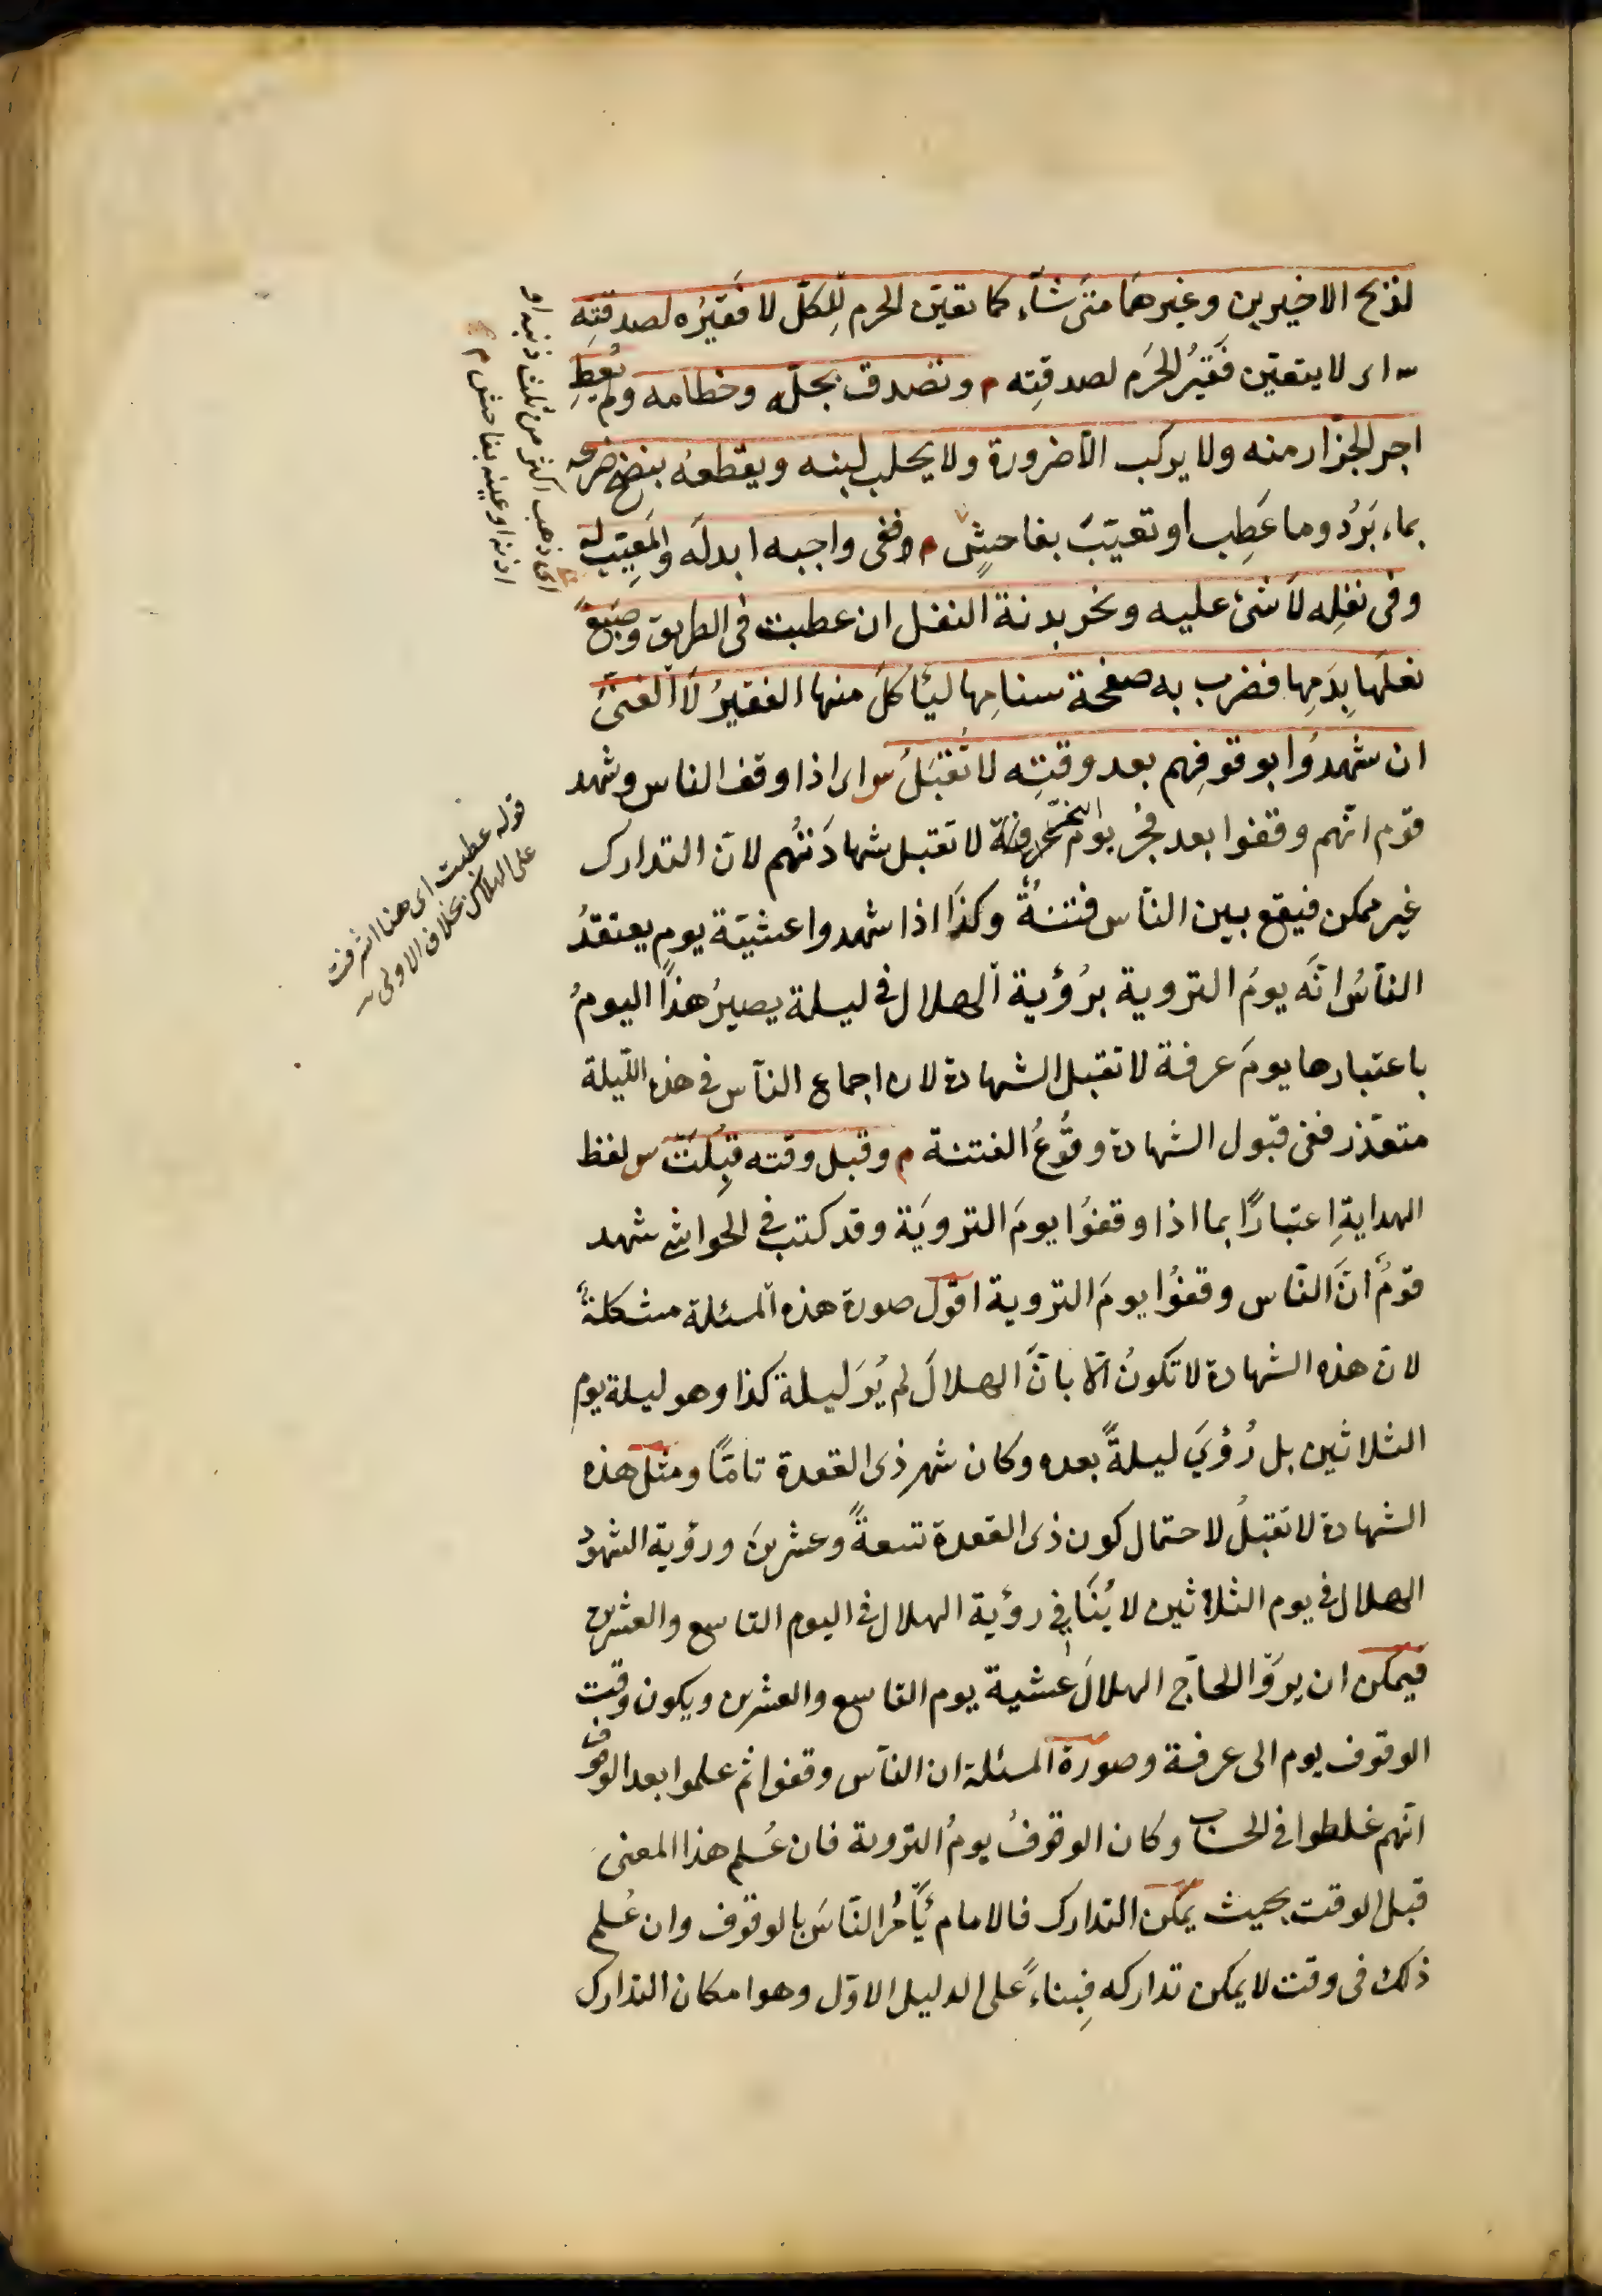 لذبح الاخيرين وغيرهما متى شآء كما تعيّن الحرم للكلّ لا فقيرُه لصدقتِه
س اى لا يتعيّن فقيرُ الحرَم لصدقتِه م وتصدق بجلّه وخطامه ولم يُعطِ
اجر الجزّار منه ولا يركب الّا ضرورة ولا يحلب لبنه ويقطعه بنضح ضرعه
بماء بَرُد وما عَطِب او تعيّبَ بفاحشٍ م ففى واجبه ابدلَه والمَعيب له
وفى نفلِه لا شئ عليه ونحر بدنة النفل ان عطبت فى الطريق وصَبغ
نعلَها بِدَمِها فضرب به صفحة سنامِها ليأكلَ منها الفقيرُ لا الغنىُّ
ان شهدُوا بوقوفِهم بعد وقتِه لا تُقبَلُ س اى اذا وقف الناس وشهد
قوم انّهم وقفوا بعد فجر يوم النحر لا تقبل شهادَتُهم لانّ التدارك
غير ممكن فيقع بين النّاس فتنةٌ وكذا اذا شهدوا عشيّة يومٍ يعتقدُ
النّاسُ انّه يومُ التروية برُؤية الهلال فى ليلة يصيرُ هذا اليومُ
باعتبارها يومَ عرفة لا تقبل الشهادة لان اجماع النّاس فى هذه اللّيلة
متعذّر ففى قبول الشهادة وقُوعُ الفتنة م وقبل وقته قُبِلَتْ س لفظ
الهدايةِ اعتبارًا بما اذا وقفوُا يومَ الترويَة وقد كتب فى الحواشى شهد
قومٌ انَّ النّاس وقفوُا يومَ التروية اقول صورة هذه المسئلة مشكلةٌ
لانّ هذه الشهادة لا تكونُ الّا بانَّ الهلالَ لم يُرَ ليلة كذا وهو ليلة يومِ
الثلاثين بل رُؤىَ ليلةً بعده وكان شهر ذى القعدة تامّا ومثل هذه
الشهادة لا تقبلُ لاحتمال كون ذى القعدة تسعةً وعشرينَ ورؤية الشهودُ
الهلال فى يوم الثلاثين لا يُنَافى رؤية الهلال فى اليوم التاسع والعشرين
فيمكن ان يروا الحاّج الهلالَ عشية يوم التاسع والعشرين ويكون وقت
الوقوف يوم الى عرفة وصورة المسئلة ان النّاس وقفوا ثم علموا بعد الوقوف
انّهم غلطوا فى الحساب وكان الوقوفُ يومُ التروية فان عُلم هذا المعنى
قبل الوقت بحيث يمكن التدارك فالامام يأمُر النّاسَ بالوقوف وان عُلم
ذلك فى وقت لا يمكن تداركه فبِناءً على الدليل الاوّل وهو امكان التدارك
اى ذهب اكثر من ثلث ذنبه او
اذنه او عينه بفاحش م
قوله عطبت اى هنا اشرفت
على الهلاك بخلاف الاولى